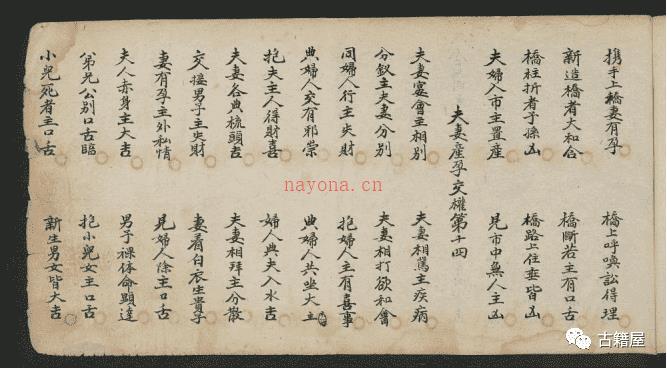 携手上橋妻有孕 橋上呼喚訟得理
新造橋者大和合 橋斷若主有口舌
橋柱折者子孫凶 橋路上往來皆凶
夫婦入市主置産 見市中無人主凶
夫妻産孕交懽第十四
夫妻宴會主相別 夫妻相罵主疾病
分釵主夫妻分別 夫妻相打欲和會
同婦人行主失財 抱婦人主有喜事
典婦人交有邪祟 典婦人共坐大主
抱夫主人得財喜 婦人典夫入水吉
夫妻各典梳頭吉 夫妻相拜主分散
交接男子主失財 妻着白衣生貴子
妻有孕主外私情 見婦人除主口舌
夫人赤身主大吉 男子裸体命顕達
弟兄公別口舌臨 抱小兒女主口舌
小兒死者主口舌 新生男女皆大吉
nayona.cn
古籍屋